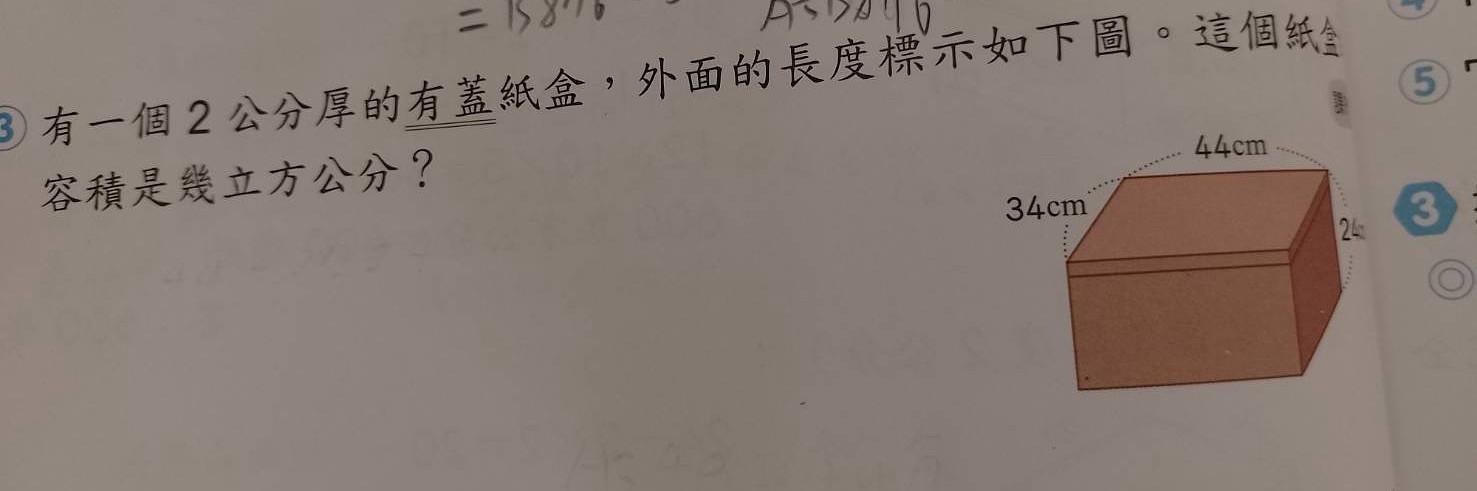 ③ 有一個2公分厚的有蓋紙盒，外面的長度標示如下圖。這個紙盒
容積是幾立方公分？
44cm
34cm
⑤
3